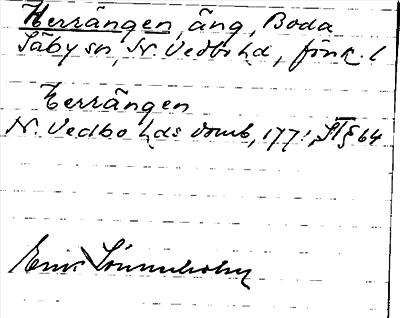 Herrängen, äng, Boda
Säby sn, N. Vedbo hd, Jönk. l
Herrängen
N. Vedbo hds domb, 1771, ST § 64
Eric Lönnholm